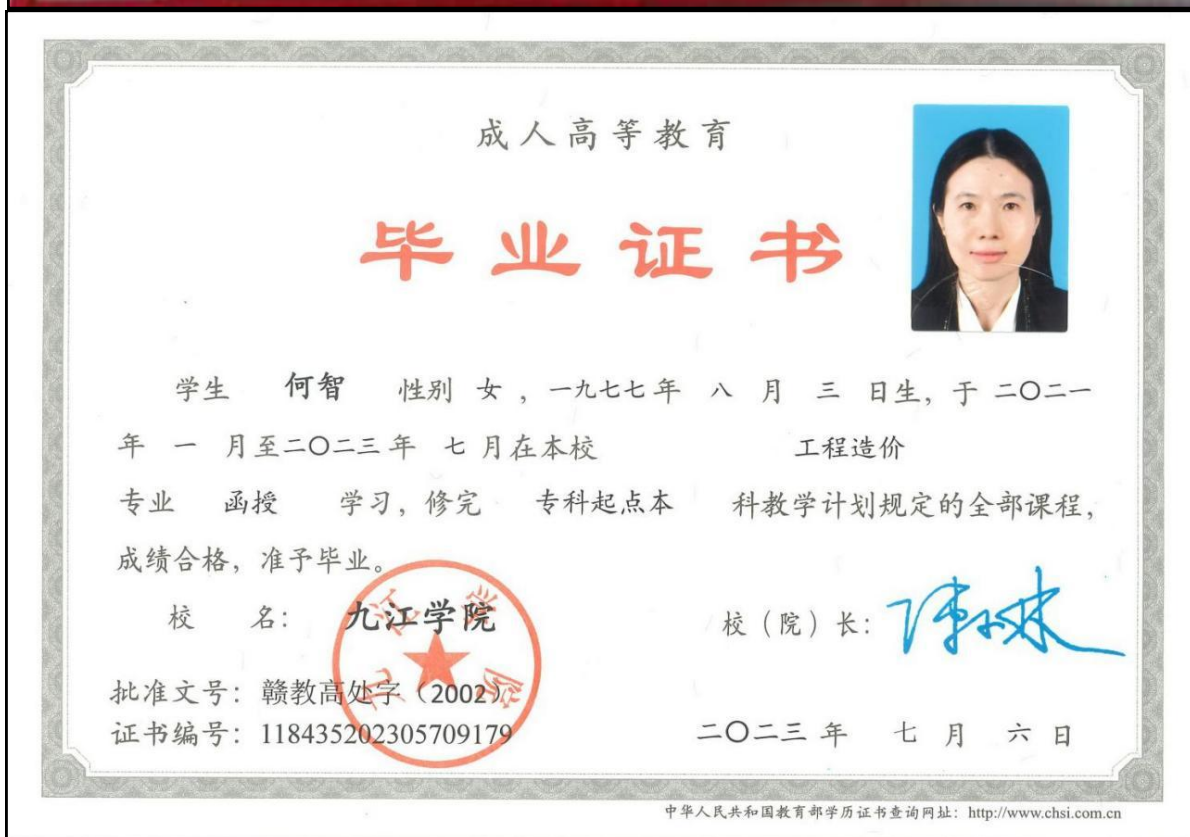 成人高等教育
毕业证书
学生 何智 性别 女 ，一九七七年 八 月 三 日生，于 二〇二一
年 一 月至二〇二三年 七 月在本校 工程造价
专业 函授 学习，修完 专科起点本 科教学计划规定的全部课程，
成绩合格，准予毕业。
校 名： 九江学院
校（院）长：
批准文号：赣教高处字（2002）
证书编号：118435202305709179
二〇二三 年 七 月 六 日
九江学院
中华人民共和国教育部学历证书查询网址：http://www.chsi.com.cn